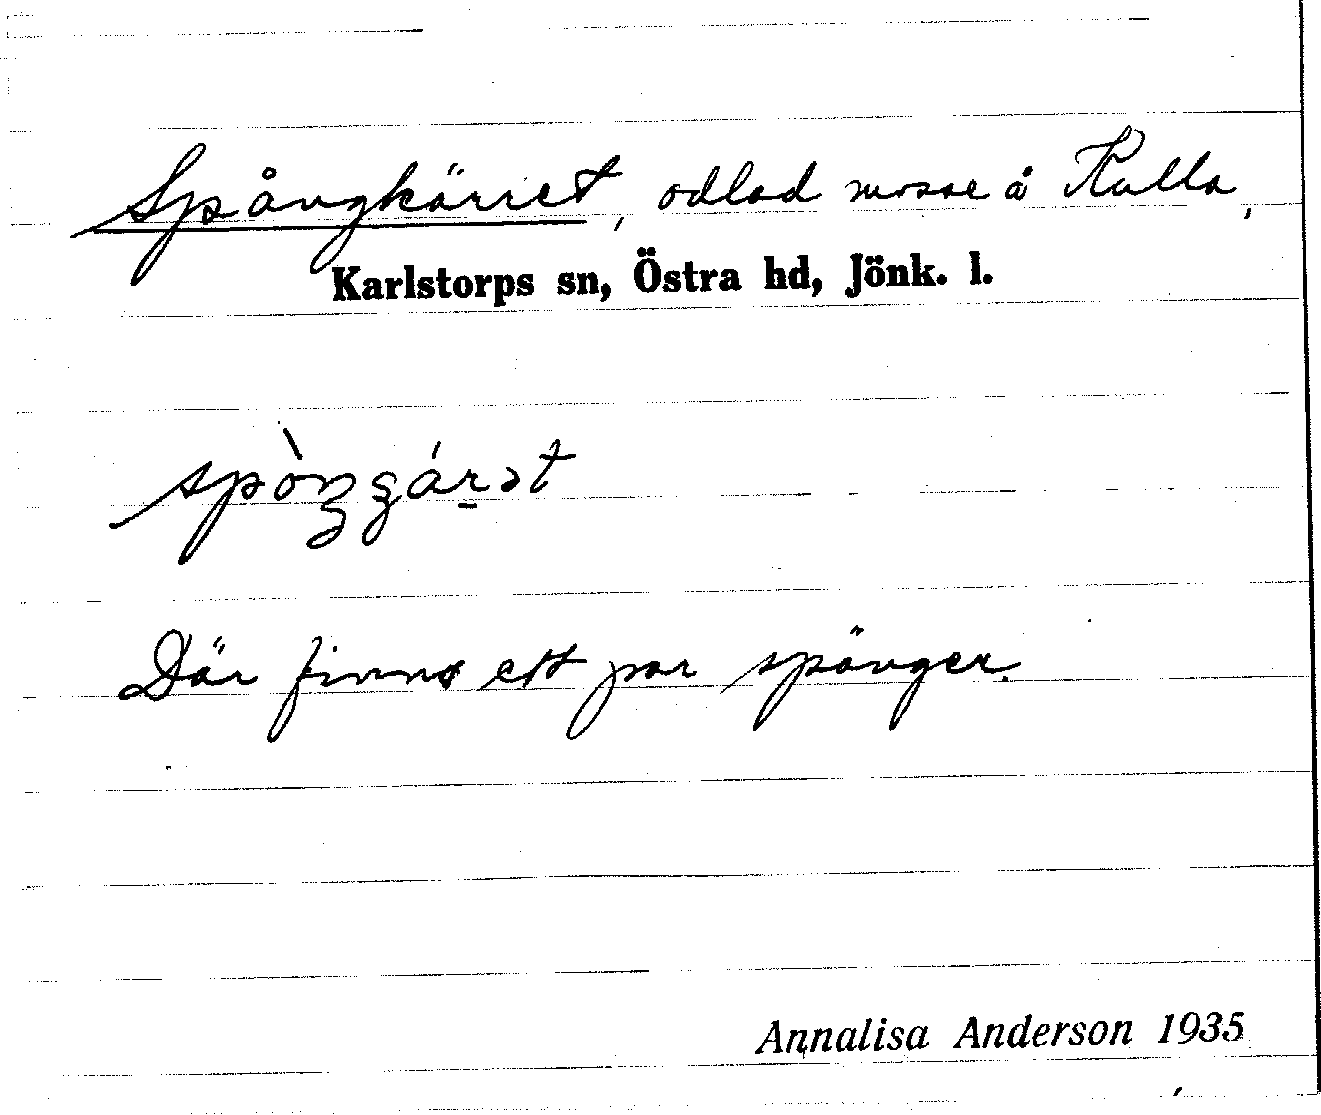 Spångkärret, odlad mosse å Kulla,
Karlstorps sn, Östra hd, Jönk. l.
Där finns ett par spänger.
Annalisa Anderson 1935